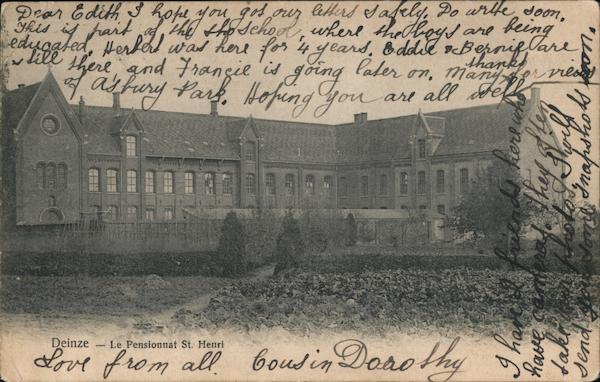 Dear Edith I hope you got our letters safely. Do write soon.
This is part of the School, where the boys are being
educated. Herbert was here for 4 years. Eddie & Bernie are
still there and Francie is going later on. Many thanks for views
of Asbury Park. Hoping you are all well.
I have friends here who
have cameras. they often
take our photos I will
send you some snapshots soon.
Deinze — Le Pensionnat St. Henri
Love from all. Cousin Dorothy